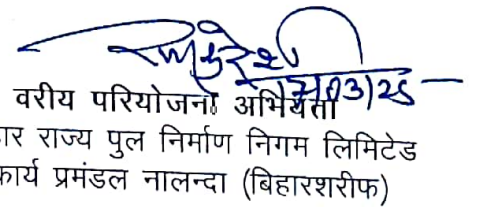 17/03/25
वरीय परियोजना अभियंता
ार राज्य पुल निर्माण निगम लिमिटेड
कार्य प्रमंडल नालन्दा (बिहारशरीफ)